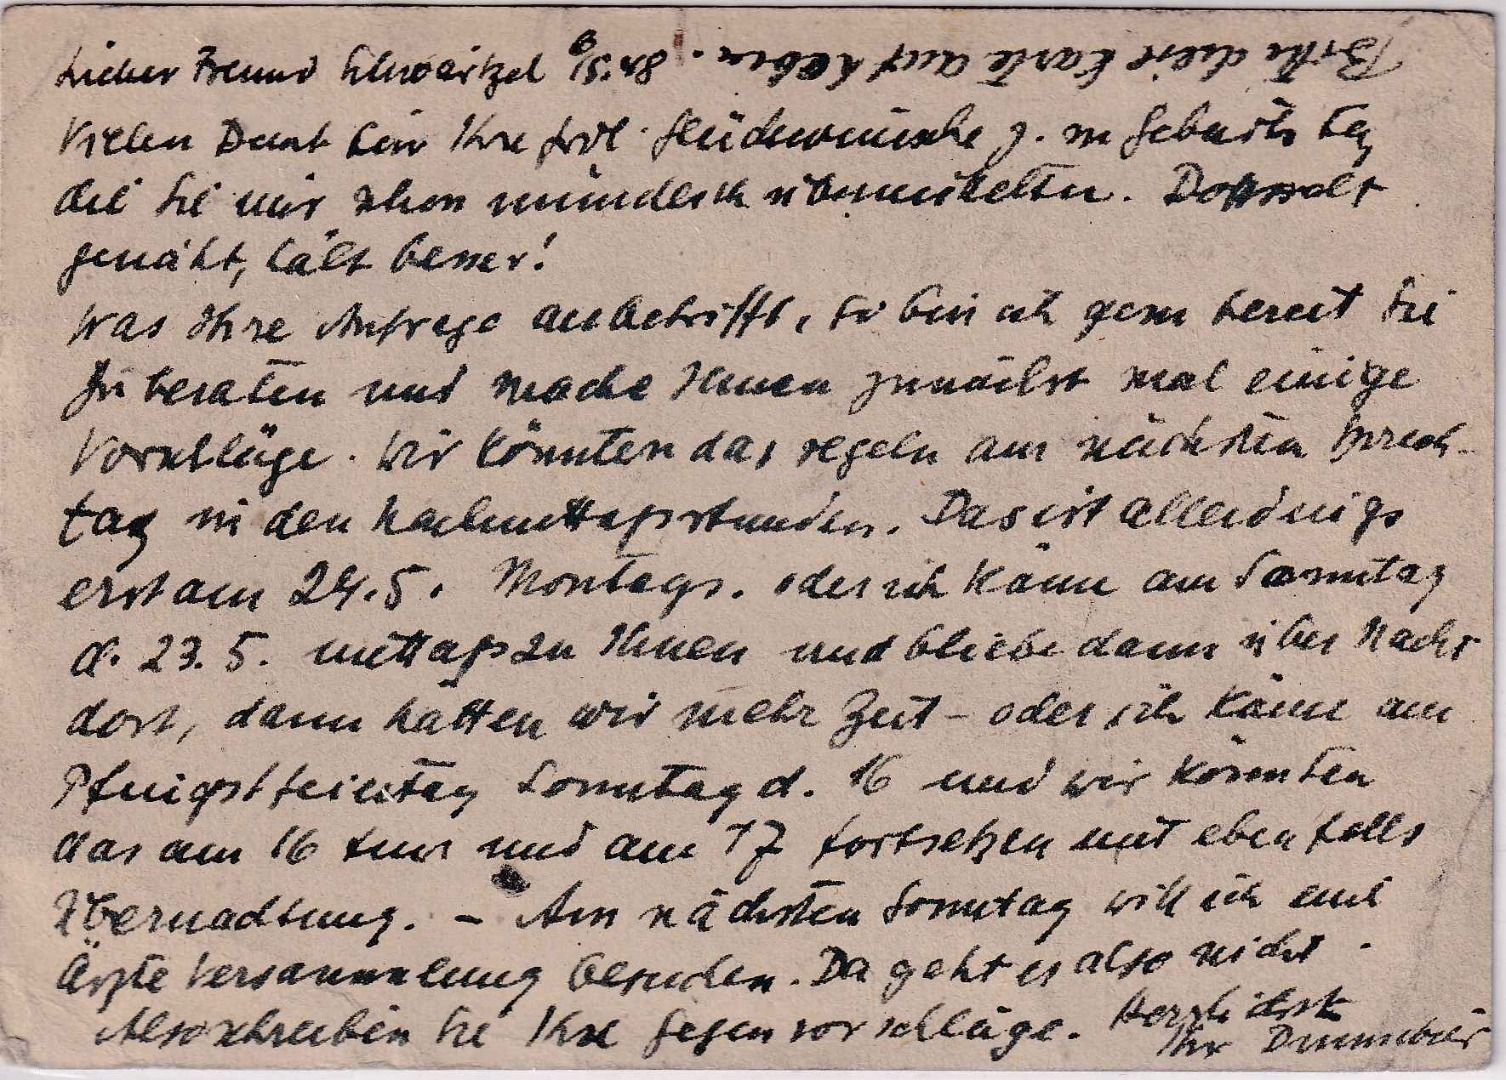 Lieber Freund Schwaitzel
Bitte diese Karte aufheben.
Vielen Dank für Ihre frdl. Glückwünsche z. m Geburtstag
die Sie mir schon mündlich übermittelten. Doppelt
genäht, hält besser!
Was Ihre Anfrage anbetrifft, so bin ich gern bereit Sie
zu beraten und mache Ihnen zunächst mal einige
Vorschläge. Wir könnten das regeln am nächsten Sprech-
tag in den Nachmittagsstunden. Das ist allerdings
erst am 24.5. Montags. oder ich käme am Sonntag
d. 23.5. mittags zu Ihnen und bliebe dann über Nacht
dort, dann hätten wir mehr Zeit – oder ich käme am
Pfingstfeiertag Sonntag d. 16 und wir könnten
das am 16 tun und am 17 fortsetzen mit ebenfalls
Übernachtung. – Am nächsten Sonntag will ich eine
Ärzte Versammlung besuchen. Da geht es also nicht.
Also schreiben Sie Ihre Gegenvorschläge. Herzlichst
Ihr